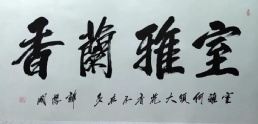 室雅蘭香
室雅何須大花香不在多